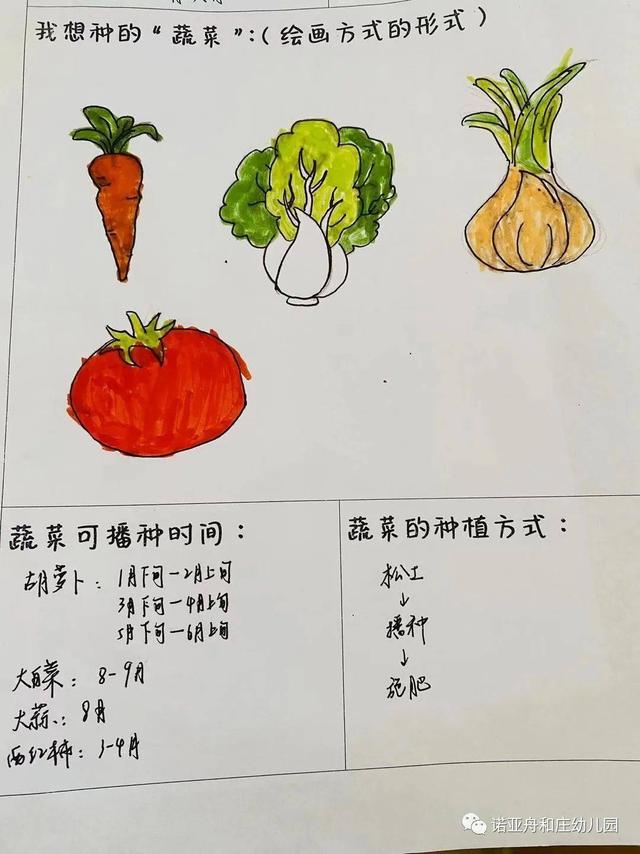 我想种的“蔬菜”:(绘画方式的形式)
蔬菜可播种时间：
胡萝卜：1月下旬—2月上旬
3月下旬—4月上旬
5月下旬—6月上旬
大白菜：8-9月
大蒜：8月
西红柿：3-4月
蔬菜的种植方式：
松土
↓
播种
↓
施肥
诺亚舟和庄幼儿园